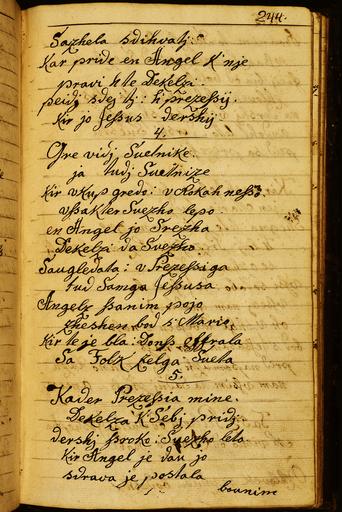 244.
Sazhela sdihvatj:
Kar pride en Angel K nje
pravi h te Dekelzi
pejdj sdej tj: k prezessij.
Kir jo Jessus dershij
4.
Gre vidj Suetnike.
ja tudj Suetnize
Kir vkup gredo: v Rokah nesso.
vssakter Suezho lepo
en Angel jo srezha
Dekelzi da Svezho.
Saugledata: v Prezessiga
tud Samga Jessusa
Angelz shanim pojo
zheshen bod s: Mario
Kir te ge bla:
Sa Folk Sueta
5.
Kader Prezessia mine.
Dekelza K Sebj pridj.
dershj sroko: Suezho leto
Kir Angel je dau jo
sdrava je postala
bounim